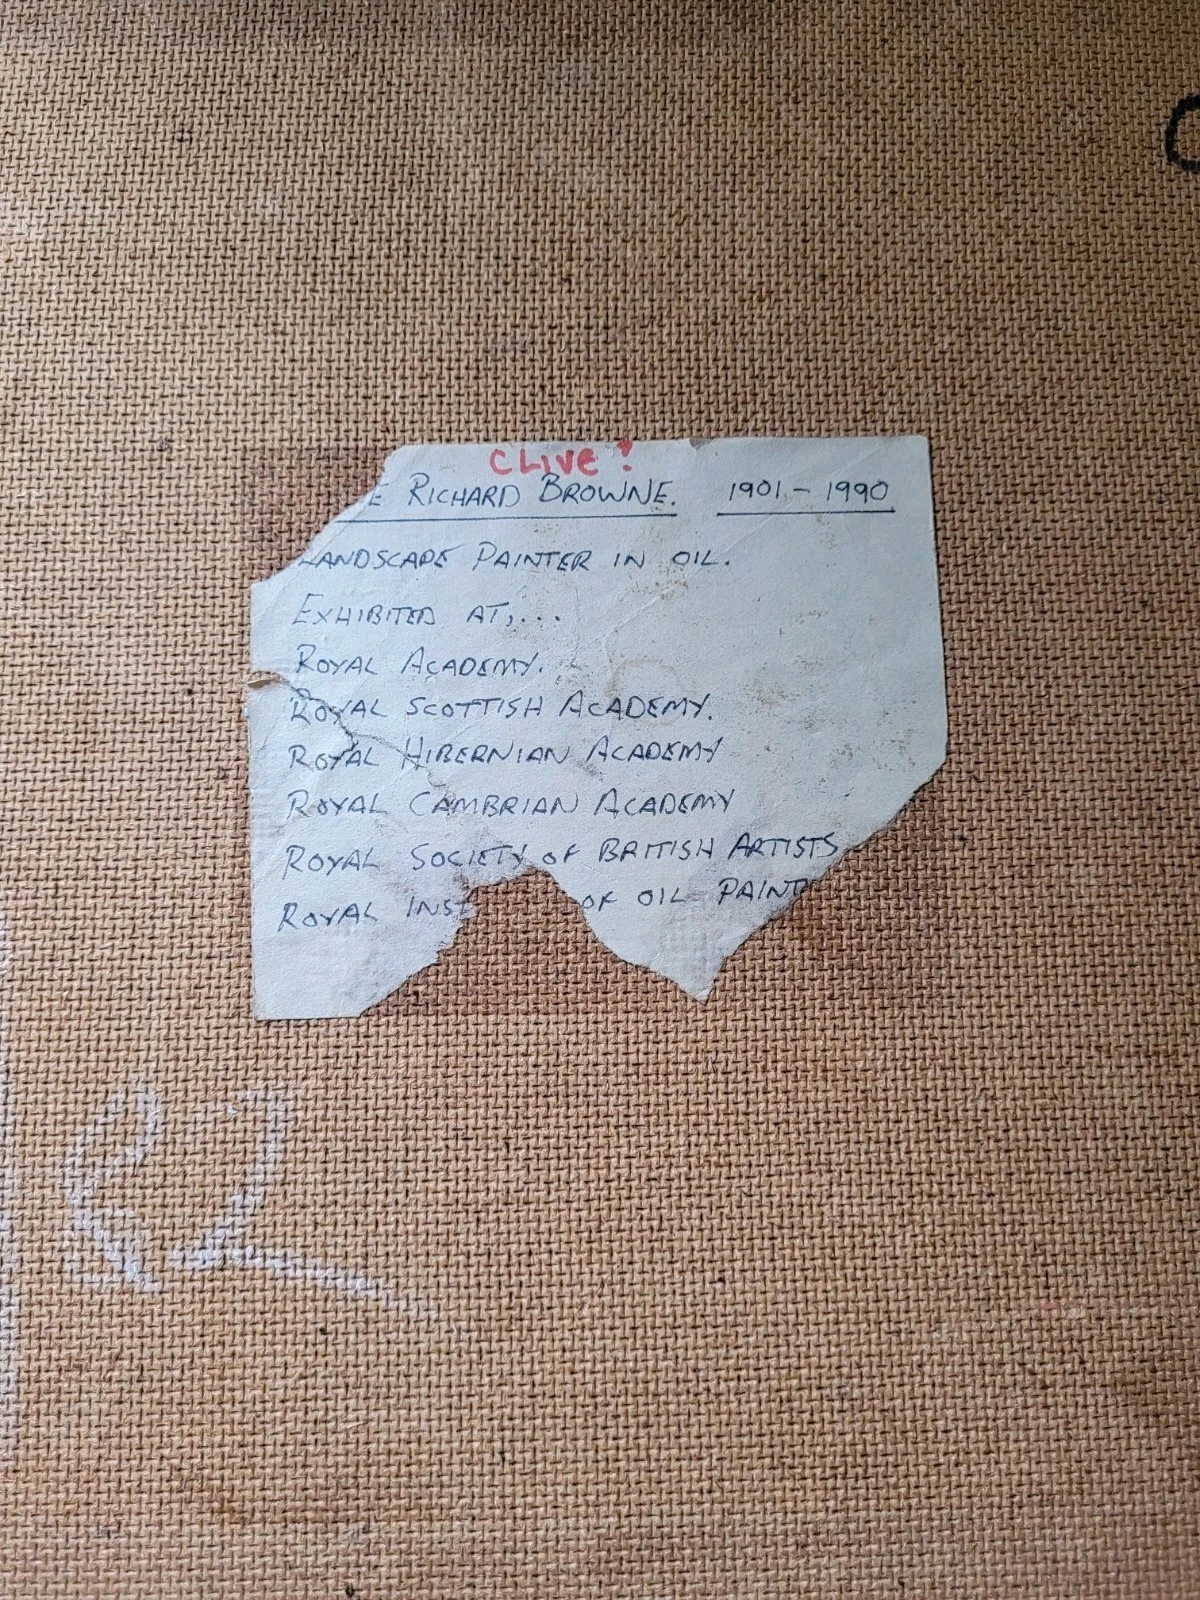 CLIVE?
E RICHARD BROWNE. 1901-1990
LANDSCAPE PAINTER IN OIL.
EXHIBITED AT,...
ROYAL ACADEMY.
ROYAL SCOTTISH ACADEMY.
ROYAL HIBERNIAN ACADEMY
ROYAL CAMBRIAN ACADEMY
ROYAL SOCIETY OF BRITISH ARTISTS
ROYAL INST OF OIL PAINT